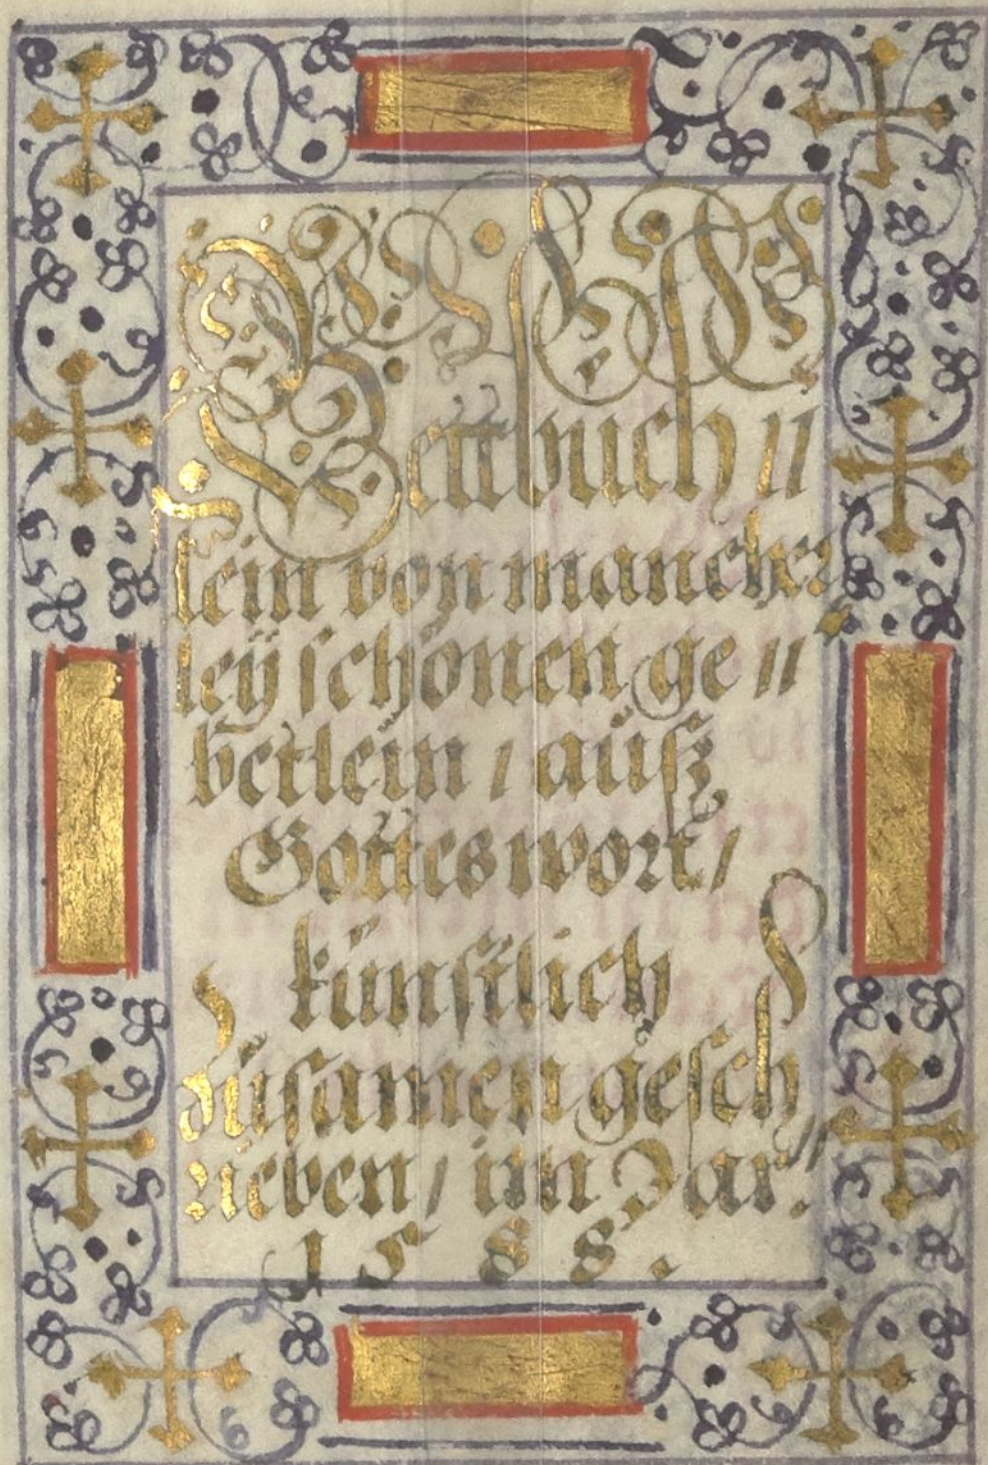 Bettbuch //
lein von mancher
leÿ schönen ge //
betlein / aüsz
Gottes wort /
künstlich
züsamen gesch //
rieben / im Jar.
1588.